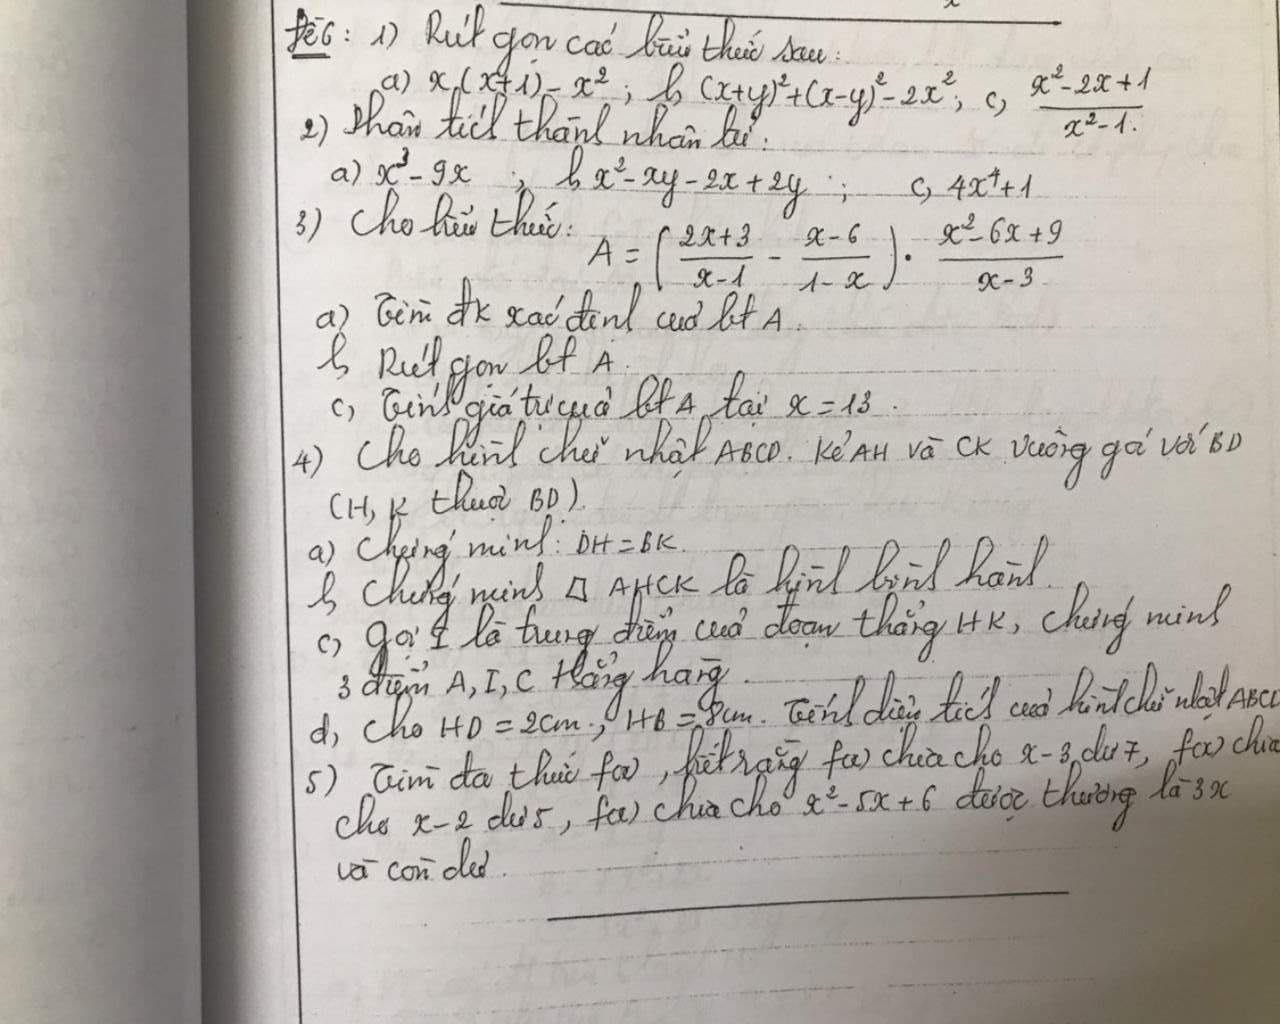 Đề 6: 1) Rút gọn các biểu thức sau:
a) x.(x+1) - x²; b, (x+y)² + (x-y)² - 2x²; c, (x² - 2x + 1)/(x² - 1).
2) Phân tích thành nhân tử:
a) x³ - 9x ; b, x² - xy - 2x + 2y ; c, 4x⁴ + 1
3) Cho biểu thức: A = ((2x+3)/(x-1) - (x-6)/(1-x)) · (x² - 6x + 9)/(x-3)
a) Tìm đk xác định của bt A.
b, Rút gọn bt A.
c, Tính giá trị của bt A tại x = 13.
4) Cho hình chữ nhật ABCD. Kẻ AH và CK vuông góc với BD
(H, K thuộc BD).
a) Chứng minh: DH = BK.
b, Chứng minh AHCK là hình bình hành.
c, gọi I là trung điểm của đoạn thẳng HK, chứng minh
3 điểm A, I, C thẳng hàng.
d, Cho HD = 2cm; HB = 8cm. Tính diện tích của hình chữ nhật ABCD
5) Tìm đa thức f(x), biết rằng f(x) chia cho x-3 dư 7, f(x) chia
cho x-2 dư 5, f(x) chia cho x² - 5x + 6 được thương là 3x
và còn dư.